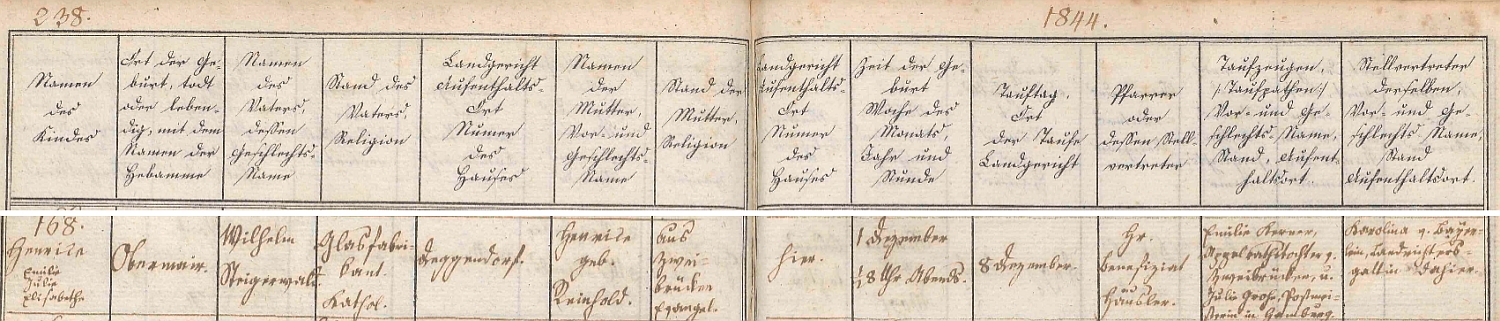 238.
1844.
Namen
des
Kindes
Ort der Ge-
burt, todt
oder leben-
dig, mit dem
Namen der
Hebamme
Namen
des
Vaters,
dessen
Geschlechts-
Name
Stand des
Vaters,
Religion
Landgericht
Aufenthalts-
Ort
Numer
des
Hauses
Namen
der
Mutter,
Vor- und
Geschlechts-
Name
Stand der
Mutter,
Religion
Landgericht
Aufenthalts-
Ort
Numer
des
Hauses
Zeit der Ge-
burt
Woche des
Monats,
Jahr und
Stunde
Tauftag,
Ort
der Taufe
Landgericht
Pfarrer
oder
dessen Stell-
vertreter
Taufzeugen,
/:Taufpathen:/
Vor- und Ge-
schlechts-Name,
Stand, Aufent
haltsort
Stellvertreter
derselben,
Vor- und Ge-
schlechts-Name,
Stand
Aufenthaltsort.
168.
Henrike
Emilie
Julie
Elisabetha
Obermair.
Wilhelm
Steigerwald.
Glasfabri-
kant.
Kathol.
Deggendorf.
Henrike
geb.
Reinhold.
Aus
Zwei-
brücken
Evangel.
hier.
1 Dezember
½8 Uhr Abends.
8 Dezember.
Hr.
Benefiziat
Häusler.
Emilie Kerner,
Appellrathstochter v.
Zweibrücken, u.
Julie Grohe, Postmei-
sterin in Homburg.
Karolina v. Bayer-
lein, Landrichters-
gattin dahier.